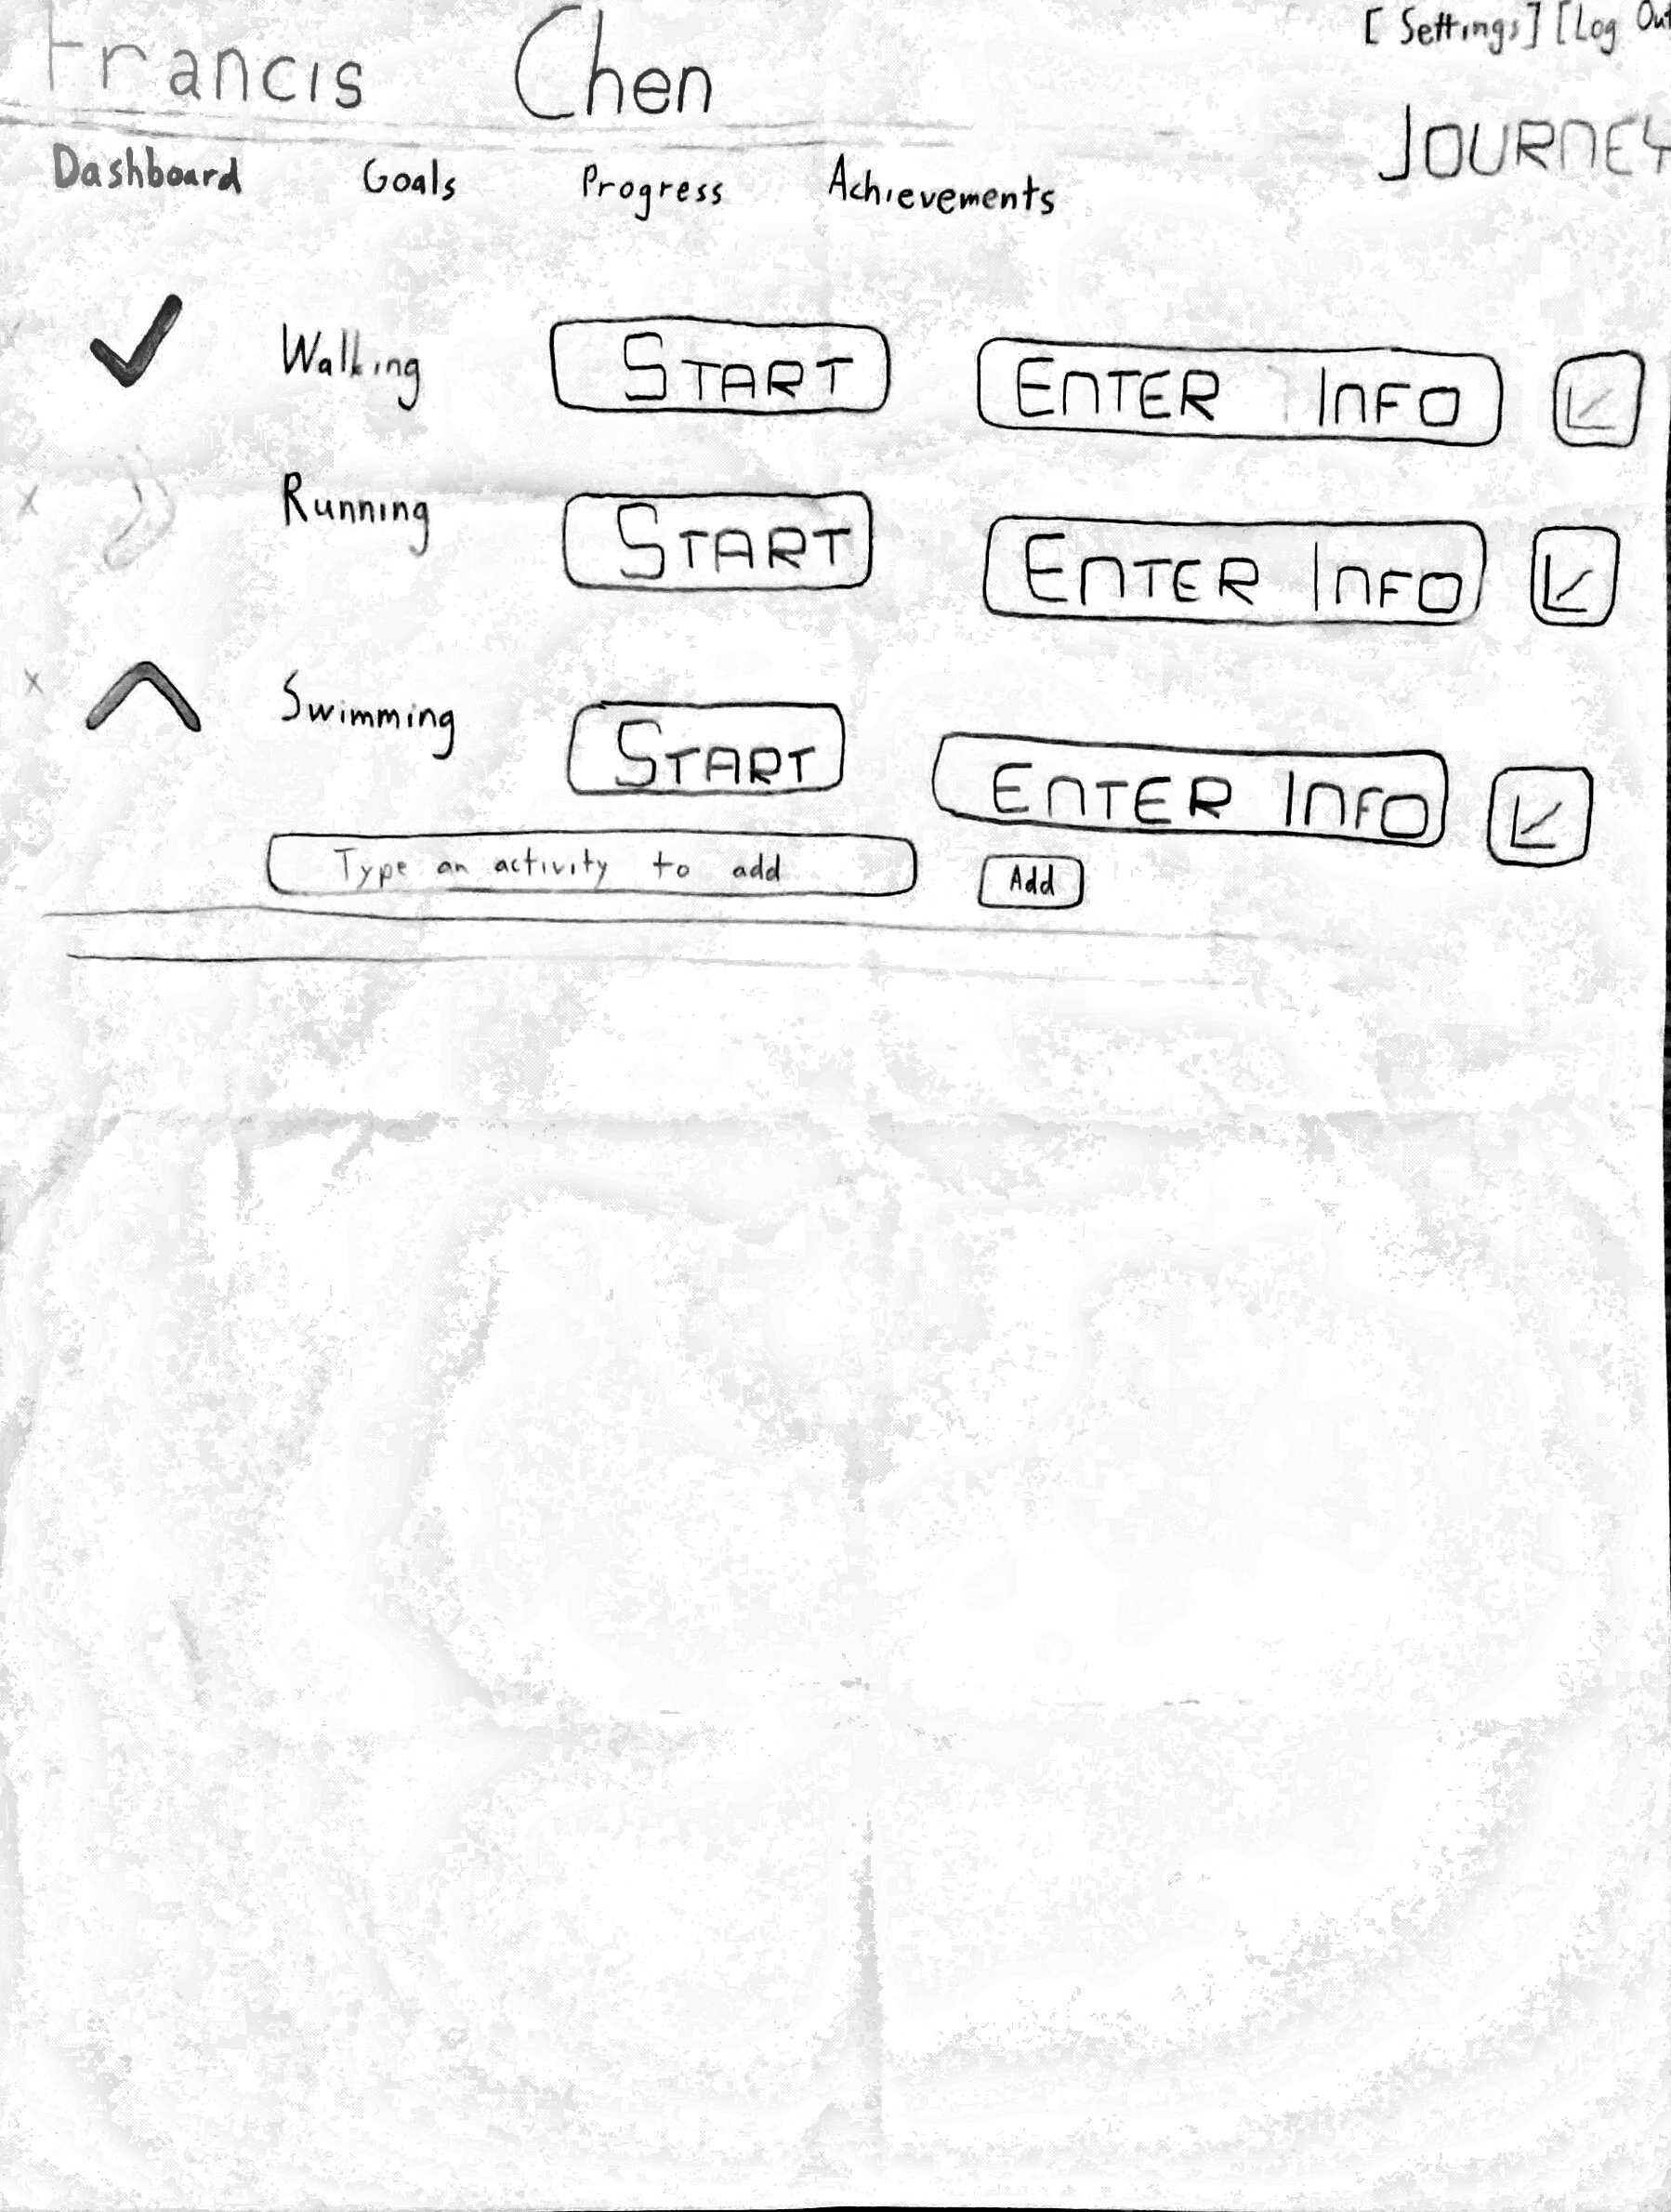 [Settings] [Log Out
Francis Chen
JOURNEY
Dashboard Goals Progress Achievements
Walking START ENTER INFO
x Running START ENTER INFO
x Swimming START ENTER INFO
Type an activity to add Add